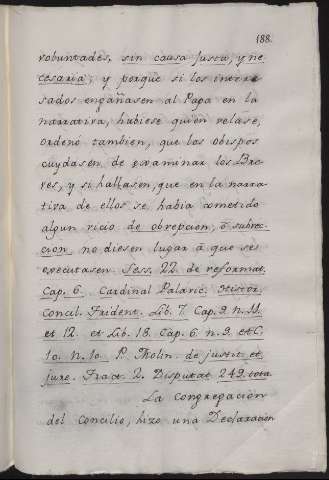 188.
voluntades, sin causa justa, y ne
cesaria; y porque si los intere
sados engañasen al Papa en la
narrativa, hubiese quien velase,
ordenó tambien, que los obispos
cuydasen de examinar los Bre
ves, y si hallasen, que en la narra-
tiva de ellos se habia cometido
algun vicio de obrepcion, ó subrec-
cion no diesen lugar á que se
executasen Sess. 22 de reformat.
Cap. 6. Cardinal Palavic. Histor.
Concil. Trident. Lib. 7. Cap. 9. n. 11.
et 12. et Lib. 18. Cap. 6. n. 9. et C.
10. n. 10. P. Molin. de justit. et
jure. Tract. 2. Disputat. 249. tota.
La Congregacion
del Concilio, hizo una Declaracion